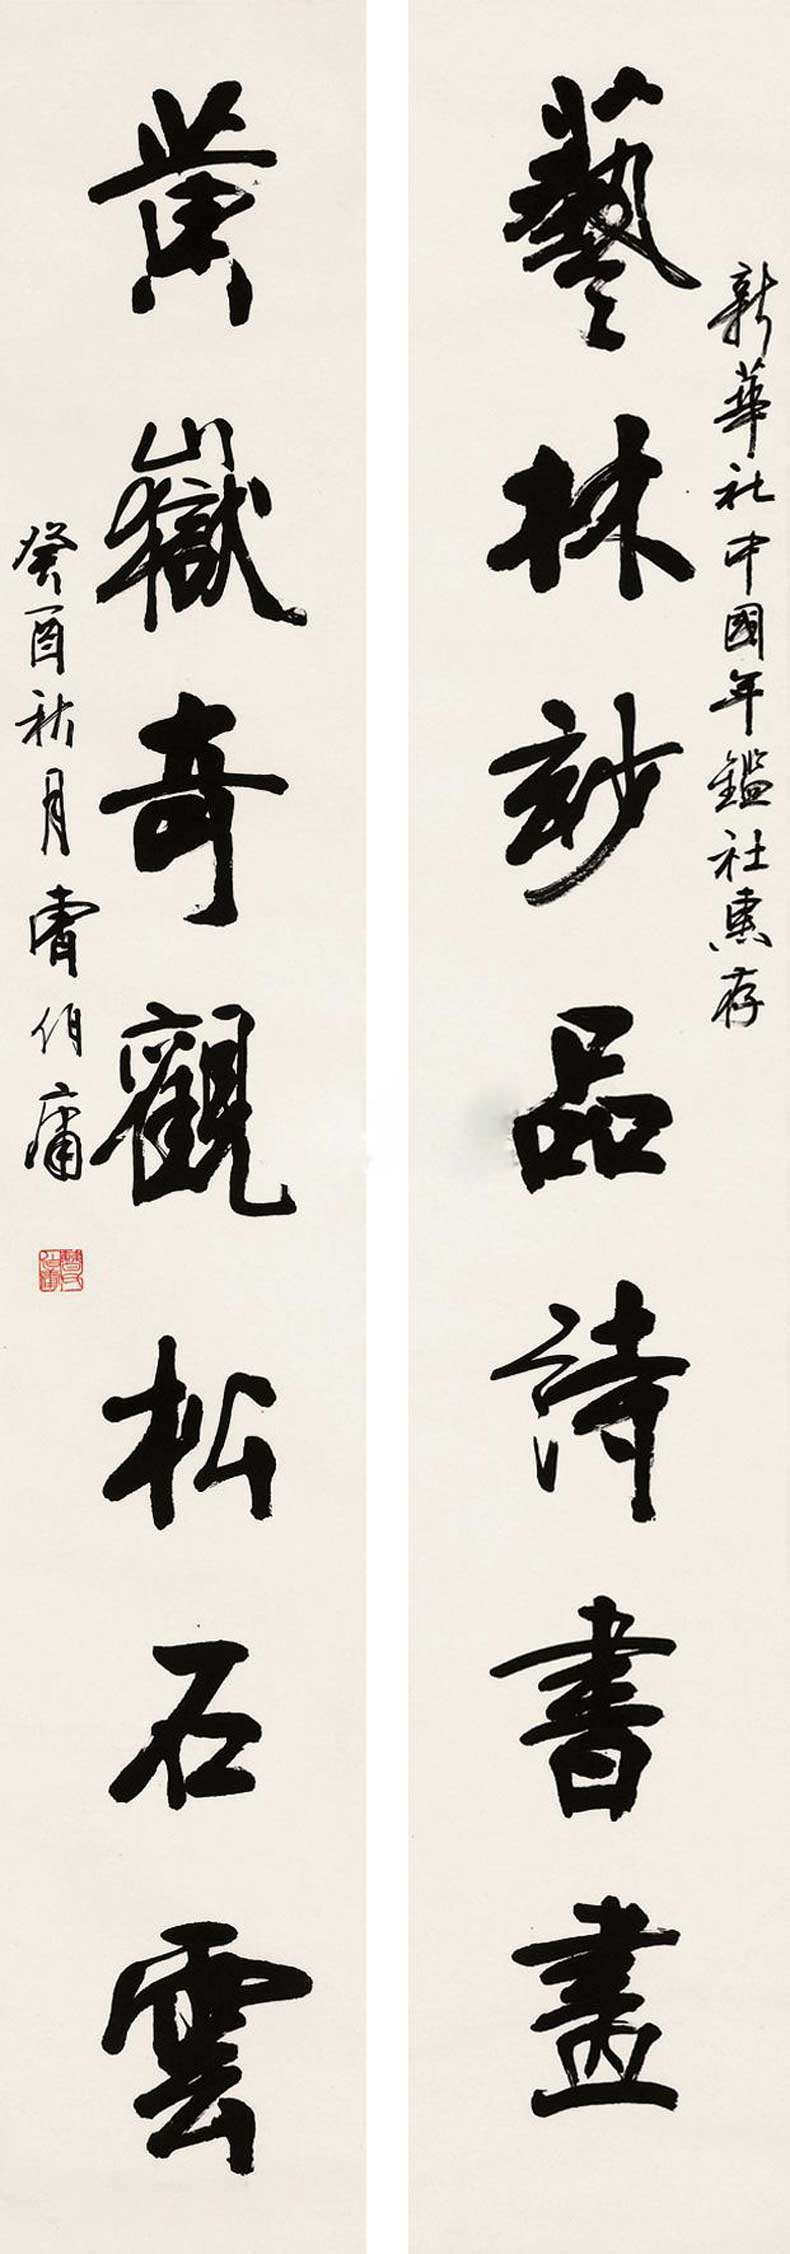 新華社中國年鑑社惠存
藝林玅品詩書畫
黄嶽奇觀松石雲
癸酉秋月曹伯庸